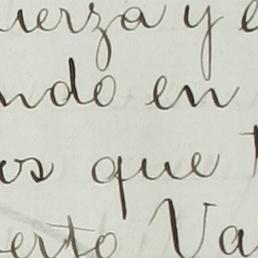 uerza y e
ndo en
os que t
erto Va